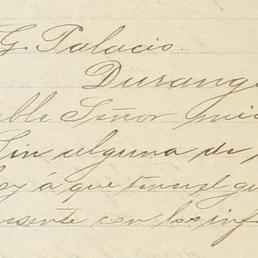 G. Palacio.
Durango
ble Señor mio
Sin alguna de
á que tenia el gu
sente con los inf